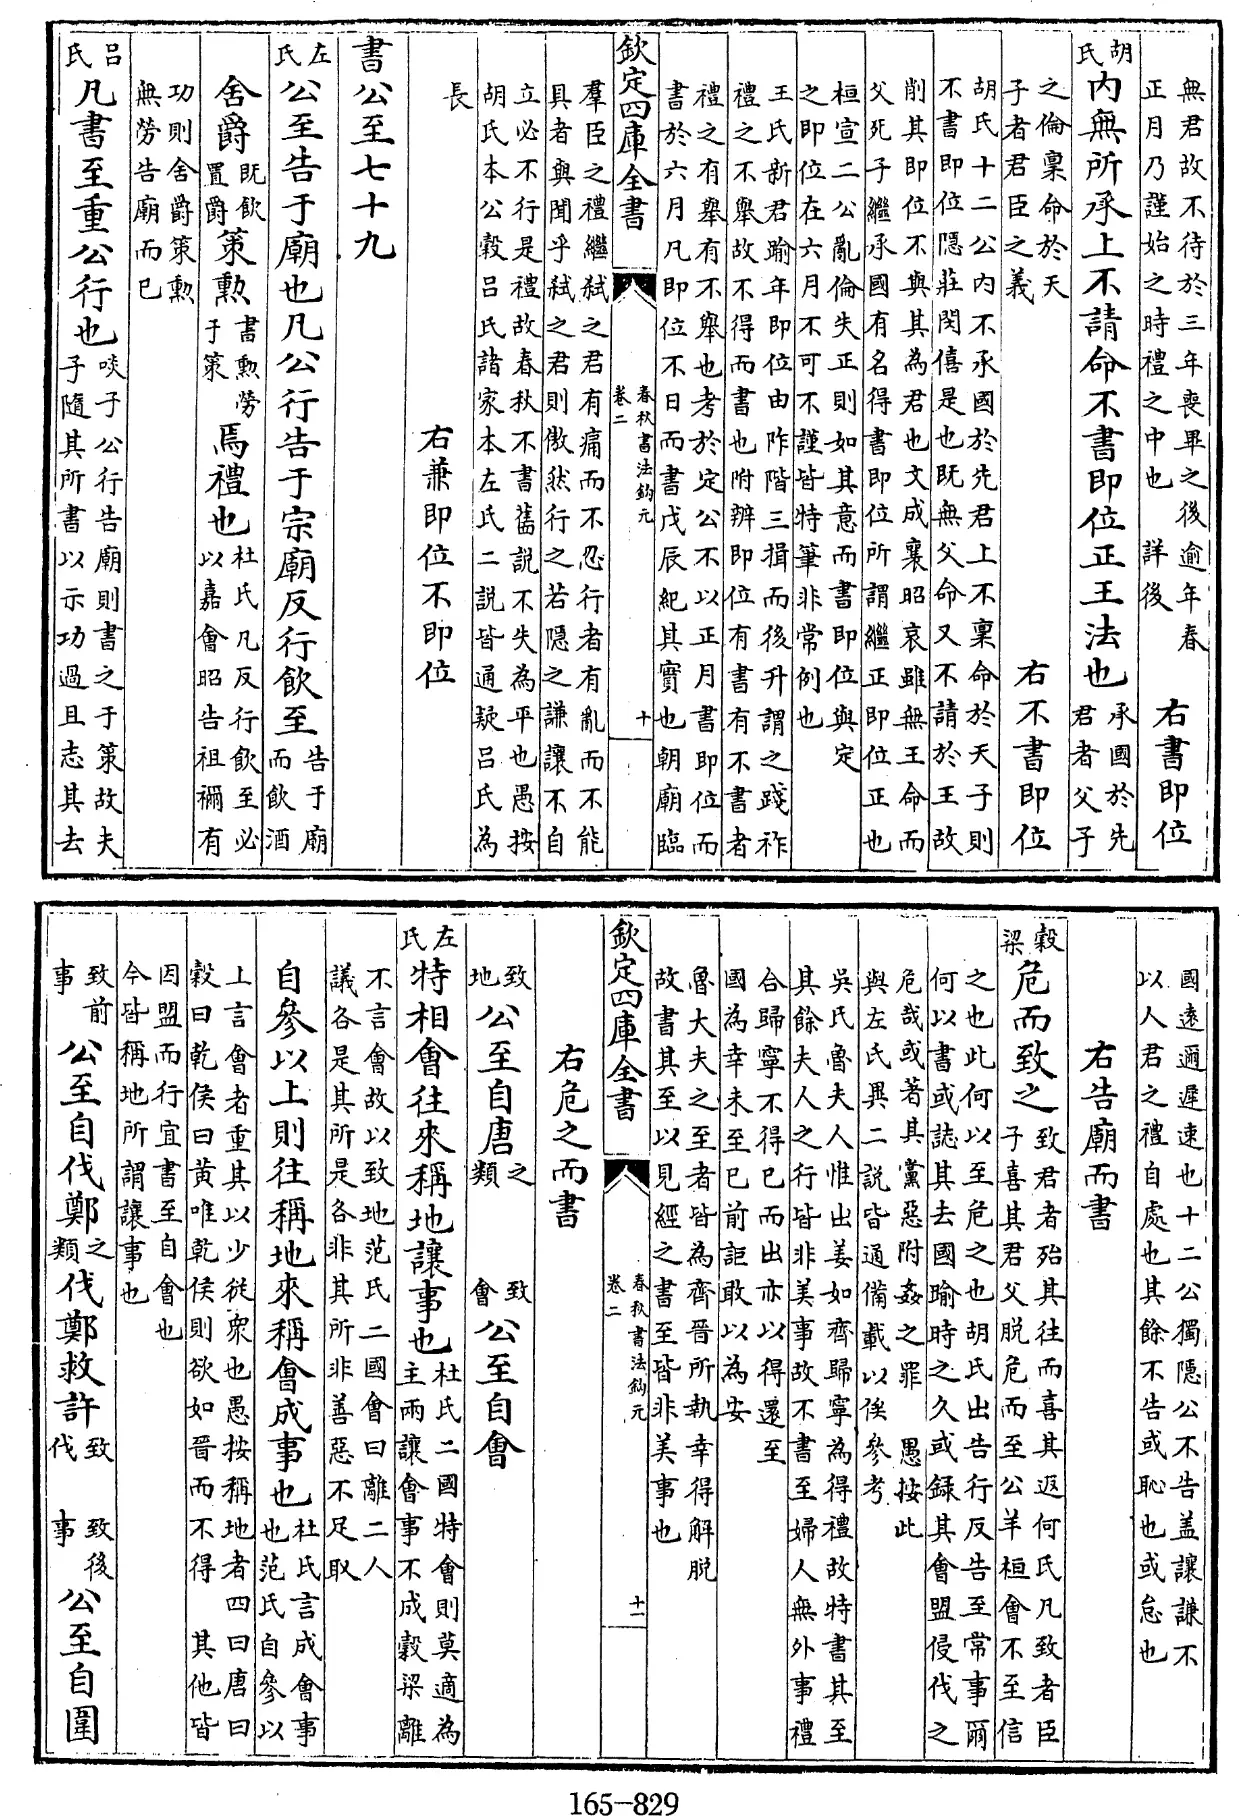 無君故不待於三年喪畢之後逾年春
正月乃謹始之時禮之中也　詳後　右書即位
胡氏　內無所承上不請命不書即位正王法也　承國於先君者父子
之倫稟命於天子者君臣之義　右不書即位
胡氏十二公內不承國於先君上不稟命於天子則
不書即位隱莊閔僖是也既無父命又不請於王故
削其即位不與其為君也文成襄昭哀雖無王命而
父死子繼承國有名得書即位所謂繼正即位正也
桓宣二公亂倫失正則如其意而書即位與定
之即位在六月不可不謹皆特筆非常例也
王氏新君踰年即位由阼階三揖而後升謂之踐祚
禮之不舉故不得而書也附辨即位有書有不書者
禮之有舉有不舉也考於定公不以正月書即位而
書於六月凡即位不日而書戊辰紀其實也朝廟臨
欽定四庫全書　春秋書法鉤元　卷二　十
羣臣之禮繼弒之君有痛而不忍行者有亂而不能
具者與聞乎弒之君則傲然行之若隱之謙讓不自
立必不行是禮故春秋不書舊説不失為平也愚按
胡氏本公穀呂氏諸家本左氏二説皆通疑呂氏為
長　右兼即位不即位
書公至七十九
左氏　公至告于廟也凡公行告于宗廟反行飲至　告于廟而飲酒
舍爵　既飲置爵　策勲　書勲勞于策　焉禮也　杜氏凡反行飲至必以嘉會昭告祖禰有
功則舍爵策勲無勞告廟而已
呂氏　凡書至重公行也　啖子公行告廟則書之于策故夫子隨其所書以示功過且志其去
國逺邇遲速也十二公獨隱公不告盖讓謙不
以人君之禮自處也其餘不告或恥也或怠也
右告廟而書
穀梁　危而致之　致君者殆其往而喜其返何氏凡致者臣子喜其君父脱危而至公羊桓會不至信
之也此何以至危之也胡氏出告行反告至常事爾
何以書或誌其去國踰時之久或録其會盟侵伐之
危哉或著其黨惡附姦之罪　愚按此
與左氏異二説皆通備載以俟參考
吳氏魯夫人惟出姜如齊歸寧為得禮故特書其至
其餘夫人之行皆非美事故不書至婦人無外事禮
合歸寧不得已而出亦以得還至
國為幸未至已前詎敢以為安
魯大夫之至者皆為齊晉所執幸得解脱
故書其至以見經之書至皆非美事也
欽定四庫全書　春秋書法鉤元　卷二　十一
右危之而書
致地　公至自唐　之類　致會　公至自會
左氏　特相會往來稱地讓事也　杜氏二國特會則莫適為主兩讓會事不成穀梁離
不言會故以致地范氏二國會曰離二人
議各是其所是各非其所非善惡不足取
自參以上則往稱地來稱會成事也　杜氏言成會事也范氏自參以
上言會者重其以少從衆也愚按稱地者四曰唐曰
穀曰乾侯曰黄唯乾侯則欲如晉而不得　其他皆
因盟而行宜書至自會也
今皆稱地所謂讓事也
致前事　公至自伐鄭　之類　伐鄭救許　致伐　致後事　公至自圍
165-829